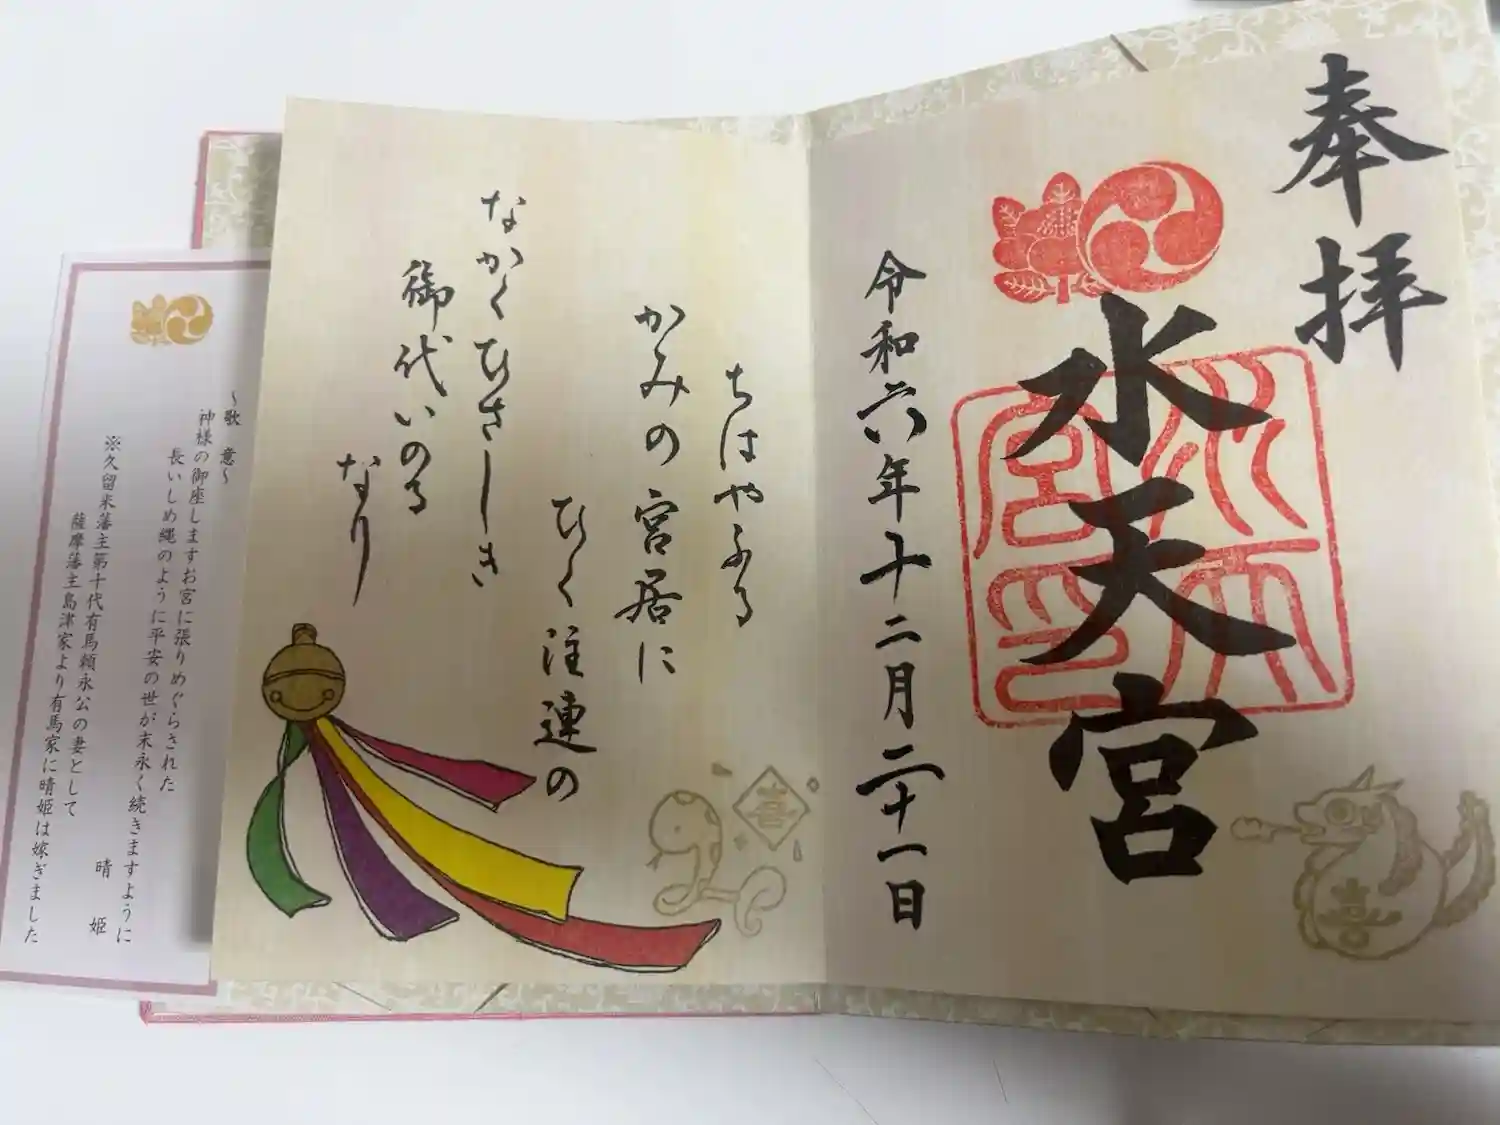 奉拝
水天宮
水天宮印
令和六年十二月二十一日
喜
ちはやふる
かみの宮居に
ひく注連の
なかくひさしき
御代いのる
なり
喜
～歌意～
神様の御座しますお宮に張りめぐらされた
長いしめ縄のように平安の世が末永く続きますように
晴姫
※久留米藩主第十代有馬頼永公の妻として
薩摩藩主島津家より有馬家に晴姫は嫁ぎました